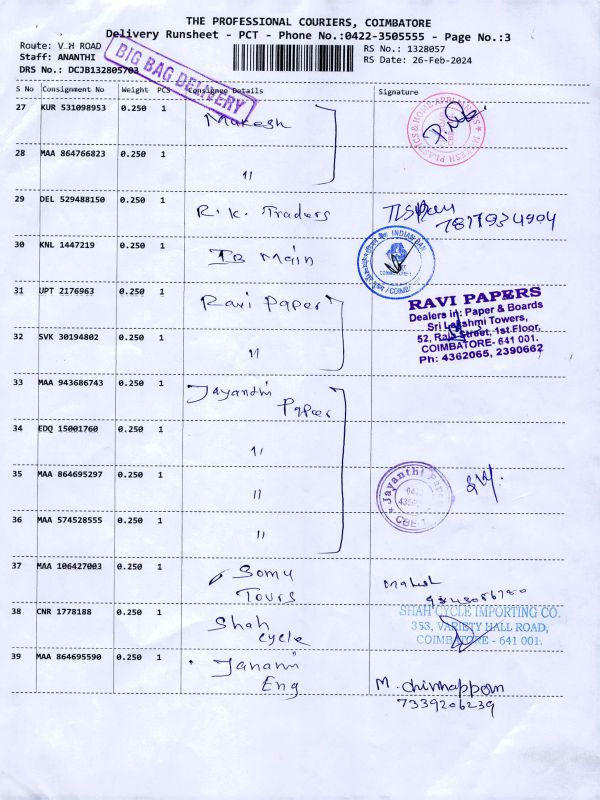 THE PROFESSIONAL COURIERS, COIMBATORE
Delivery Runsheet - PCT - Phone No.:0422-3505555 - Page No.:3
Route: V_H ROAD
RS No.: 1328057
Staff: ANANTHI
RS Date: 26-Feb-2024
DRS No.: DCJB132805703
BIG BAG DELIVERY
S No Consignment No Weight PCS Consignee Details Signature
27 KUR 531098953 0.250 1 Mahesh
28 MAA 864766823 0.250 1 "
29 DEL 529488150 0.250 1 R.K. Traders
30 KNL 1447219 0.250 1 IB Main
INDIAN BAN
31 UPT 2176963 0.250 1 Ravi Paper
RAVI PAPERS
Dealers in: Paper & Boards
Sri Lakshmi Towers,
52, Raja Street, 1st Floor,
COIMBATORE- 641 001.
Ph: 4362065, 2390662
32 SVK 30194802 0.250 1 "
33 MAA 943686743 0.250 1 Jayandhi
Paper
34 EDQ 15001760 0.250 1 "
35 MAA 864695297 0.250 1 "
Jayanthi Paper
CBE-1
36 MAA 574528555 0.250 1 "
37 MAA 106427003 0.250 1 Somu
Tours
Mahesh
38 CNR 1778188 0.250 1 Shah
cycle
SHAH CYCLE IMPORTING CO.
353, VARIETY HALL ROAD,
COIMBATORE - 641 001.
39 MAA 864695590 0.250 1 Janani
Eng
M. chinnappan
7339206239